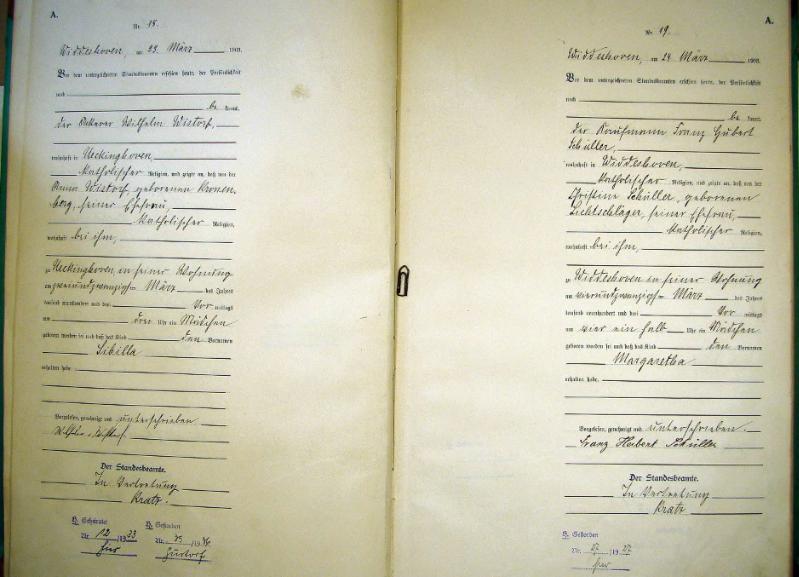 A.
Nr. 18.
Widdeshoven, am 23. März 1903.
Vor dem unterzeichneten Standesbeamten erschien heute, der Persönlichkeit
nach
be kannt,
der Ackerer Wilhelm Wistorf,
wohnhaft in Ueckinghoven,
katholischer Religion, und zeigte an, daß von der
Anna Wistorf, geborenen Kronen-
berg, seiner Ehefrau,
katholischer Religion,
wohnhaft bei ihm,
zu Ueckinghoven, in seiner Wohnung
am zweiundzwanzigsten März des Jahres
tausend neunhundert und drei Vor mittags
um drei Uhr ein Mädchen
geboren worden sei und daß das Kind den Vornamen
Sibilla
erhalten habe.
Vorgelesen, genehmigt und unterschrieben
Wilhelm Wistorf.
Der Standesbeamte.
In Vertretung
Kratz.
H. Geheiratet
Nr. 12 1933
H. Gestorben
Nr. 19
A.
Nr. 19.
Widdeshoven, am 24. März 1903.
Vor dem unterzeichneten Standesbeamten erschien heute, der Persönlichkeit
nach
be kannt,
der Kaufmann Franz Hubert
Schüller,
wohnhaft in Widdeshoven,
katholischer Religion, und zeigte an, daß von der
Christine Schüller, geborenen
Lichtschlager, seiner Ehefrau,
katholischer Religion,
wohnhaft bei ihm,
zu Widdeshoven in seiner Wohnung
am vierundzwanzigsten März des Jahres
tausend neunhundert und drei Vor mittags
um vier ein halb Uhr ein Mädchen
geboren worden sei und daß das Kind den Vornamen
Margaretha
erhalten habe.
Vorgelesen, genehmigt und unterschrieben.
Franz Hubert Schüller
Der Standesbeamte.
In Vertretung
Kratz
H. Gestorben
Nr. 1937